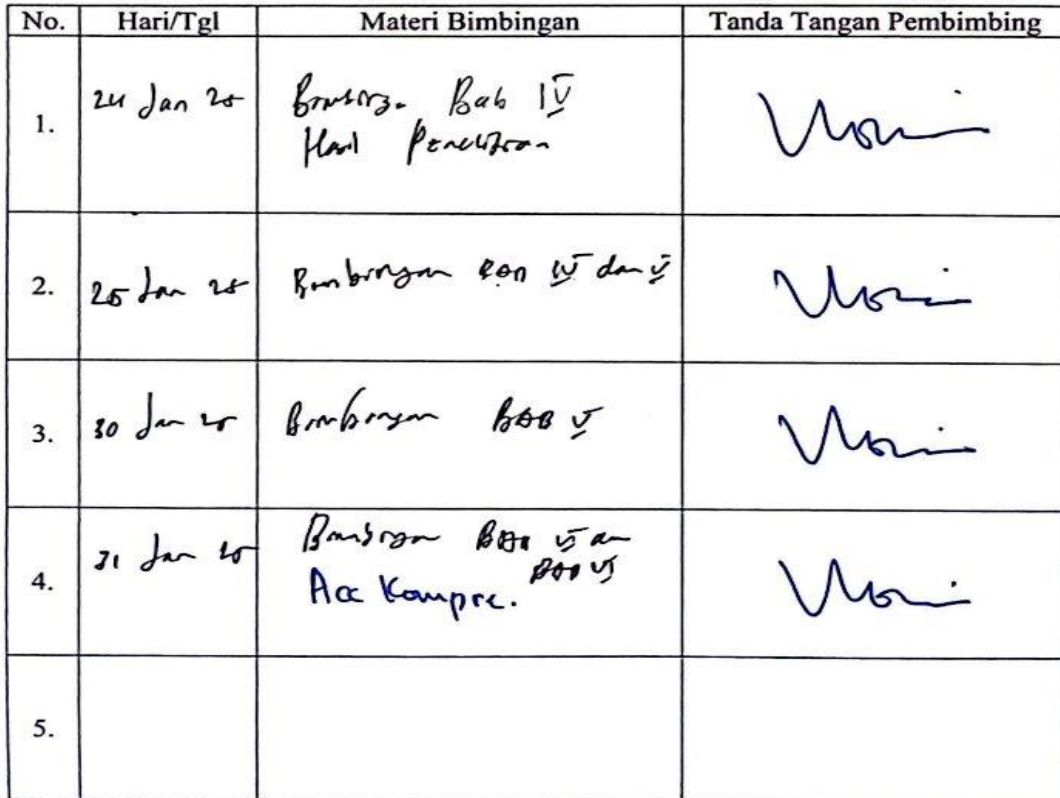 No. Hari/Tgl Materi Bimbingan Tanda Tangan Pembimbing
1. 24 Jan 25 Bimbinga Bab IV
Hasil Penelitian
2. 25 Jan 25 Bimbingan BAB IV dan V
3. 30 Jan 25 Bimbingan BAB V
4. 31 Jan 25 Bimbingan BAB V dan
BAB VI
Acc Kompre.
5.